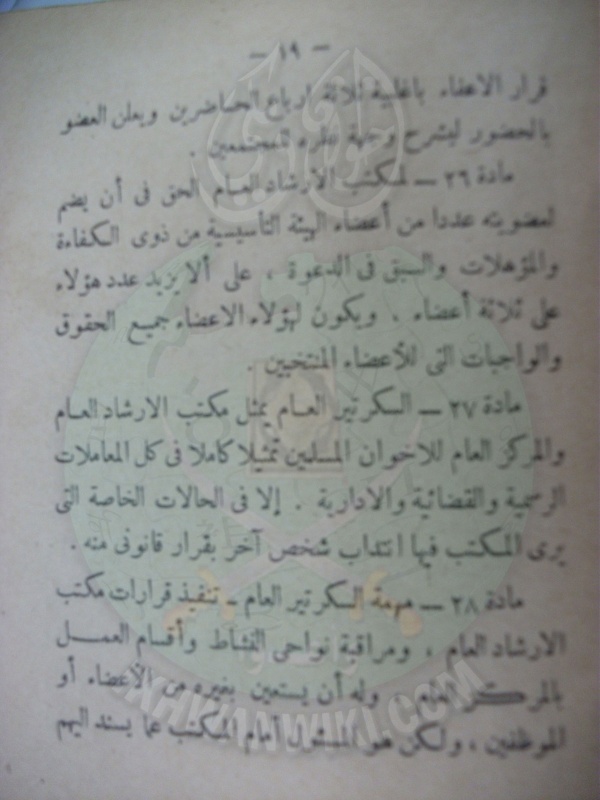 — ١٩ —
قرار الاعضاء باغلبية ثلاثة ارباع الحاضرين ويعلن العضو
بالحضور ليشرح وجهة نظره للمجتمعين .
مادة ٢٦ — لمكتب الارشاد العام الحق فى أن يضم
لعضويته عددا من أعضاء الهيئة التأسيسية من ذوى الكفاءة
والمؤهلات والسبق فى الدعوة ، على ألا يزيد عدد هؤلاء
على ثلاثة أعضاء . ويكون لهؤلاء الاعضاء جميع الحقوق
والواجبات التى للأعضاء المنتخبين .
مادة ٢٧ — السكرتير العام يمثل مكتب الارشاد العام
والمركز العام للاخوان المسلمين تمثيلا كاملا فى كل المعاملات
الرسمية والقضائية والادارية . إلا فى الحالات الخاصة التى
يرى المكتب فيها انتداب شخص آخر بقرار قانونى منه .
مادة ٢٨ — مهمة السكرتير العام ـ تنفيذ قرارات مكتب
الارشاد العام ، ومراقبة نواحى النشاط وأقسام العمل
بالمركز العام وله أن يستعين بغيره من الأعضاء أو
الموظفين ، ولكن هو المسئول أمام المكتب عما يسند اليهم
IKHWANWIKI.COM